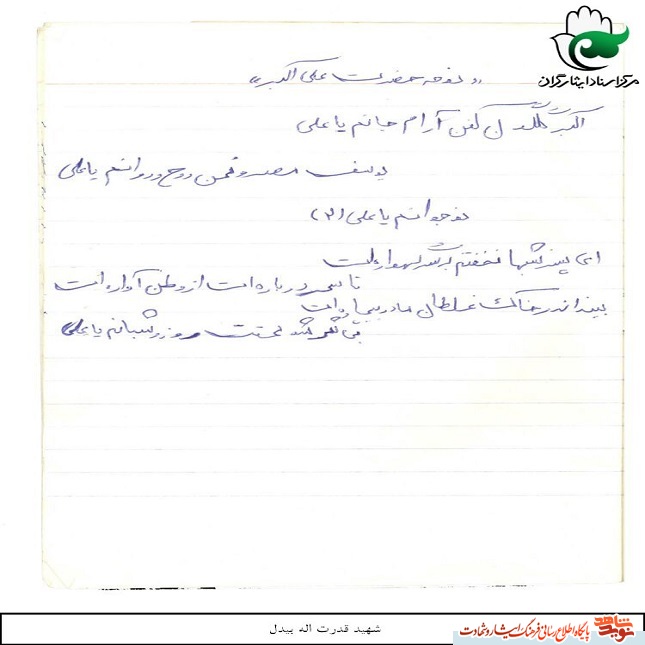 مرکز اسناد ایثارگران
«نوحه حضرت علی اکبر»
اکبر گلگون کفن آرام جانم یا علی
یوسف مصر و من روح و روانم یا علی
نوجوانم یا علی (۲)
ای پسر شبها نخفتم بر سر گهواره‌ات
از وطن آواره‌ات
بیند اندر خاک غلطان مادر بیچاره‌ات
بی ثمر شد محنت روز و شبانم یا علی
شهید قدرت اله بیدل
نوید شاهد
پایگاه اطلاع رسانی فرهنگ ایثار و شهادت